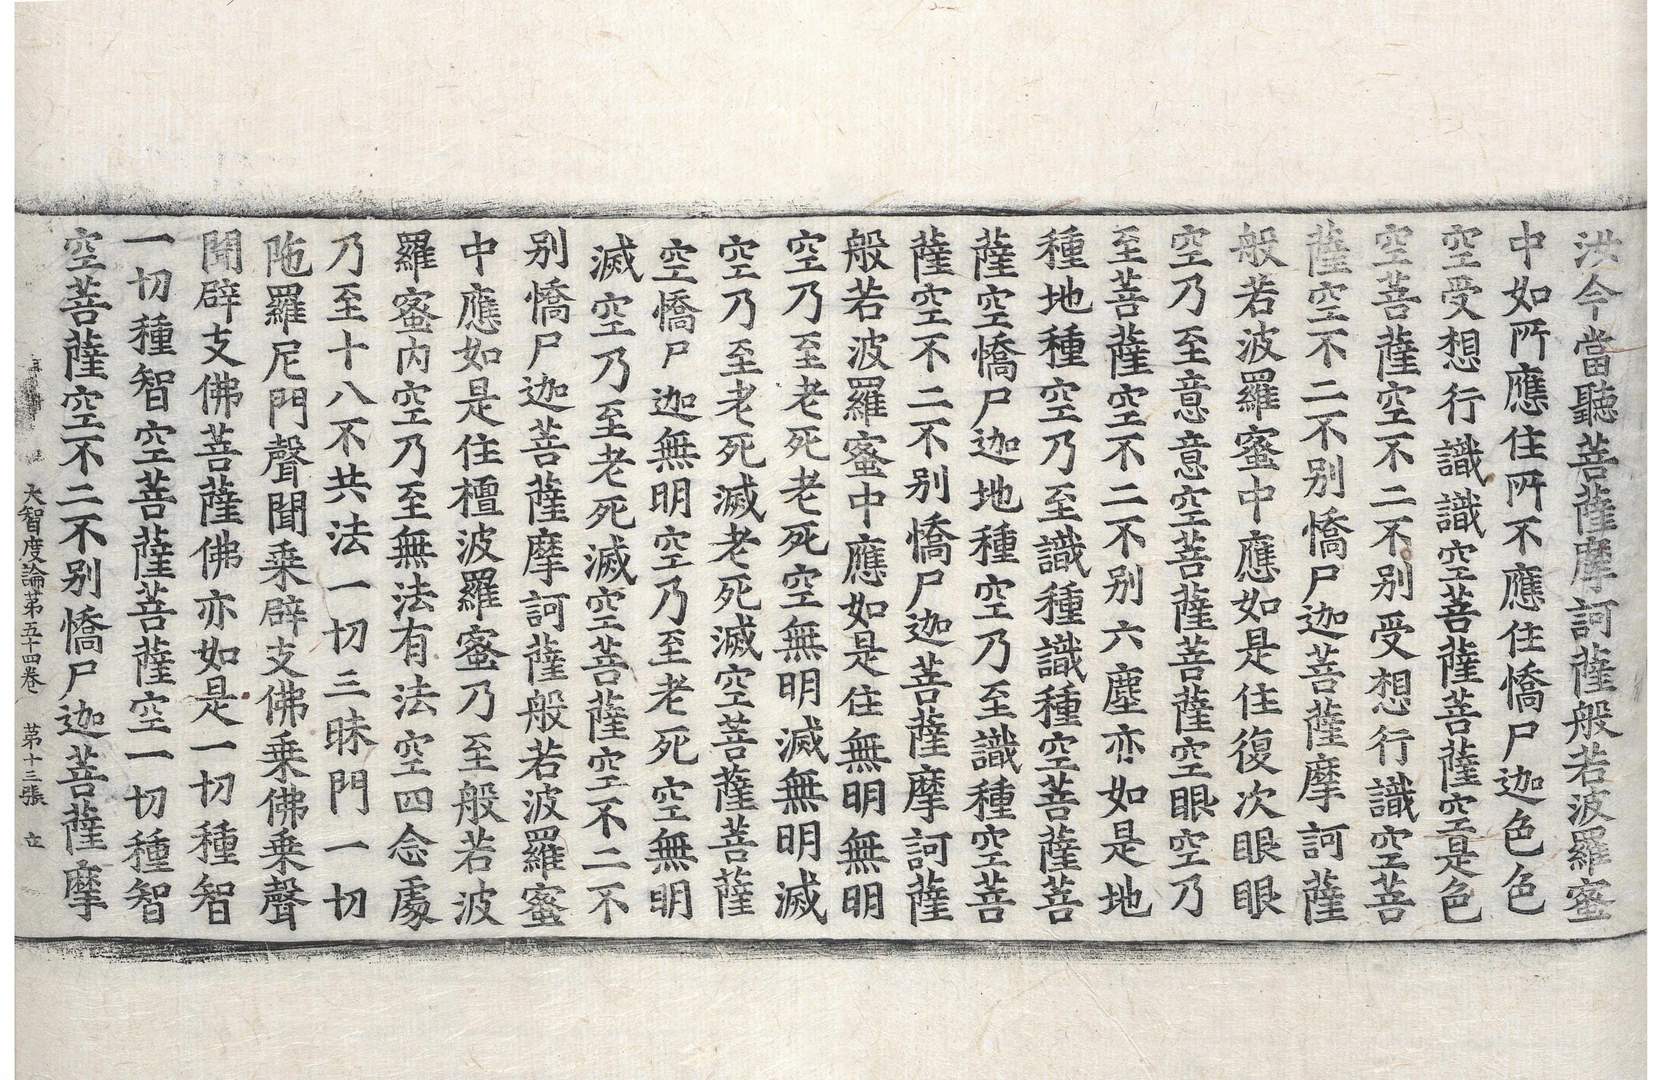 洪今當聽菩薩摩訶薩般若波羅蜜
中如所應住所不應住憍尸迦色色
空受想行識識空菩薩菩薩空是色
空菩薩空不二不别受想行識空菩
薩空不二不别憍尸迦菩薩摩訶薩
般若波羅蜜中應如是住復次眼眼
空乃至意意空菩薩菩薩空眼空乃
至菩薩空不二不别六塵亦如是地
種地種空乃至識種識種空菩薩菩
薩空憍尸迦地種空乃至識種空菩
薩空不二不别憍尸迦菩薩摩訶薩
般若波羅蜜中應如是住無明無明
空乃至老死老死空無明滅無明滅
空乃至老死滅老死滅空菩薩菩薩
空憍尸迦無明空乃至老死空無明
滅空乃至老死滅空菩薩空不二不
别憍尸迦菩薩摩訶薩般若波羅蜜
中應如是住檀波羅蜜乃至般若波
羅蜜內空乃至無法有法空四念處
乃至十八不共法一切三昧門一切
陁羅尼門聲聞乘辟支佛乘佛乘聲
聞辟支佛菩薩佛亦如是一切種智
一切種智空菩薩菩薩空一切種智
空菩薩空不二不别憍尸迦菩薩摩
大智度論第五十四卷 第十三張